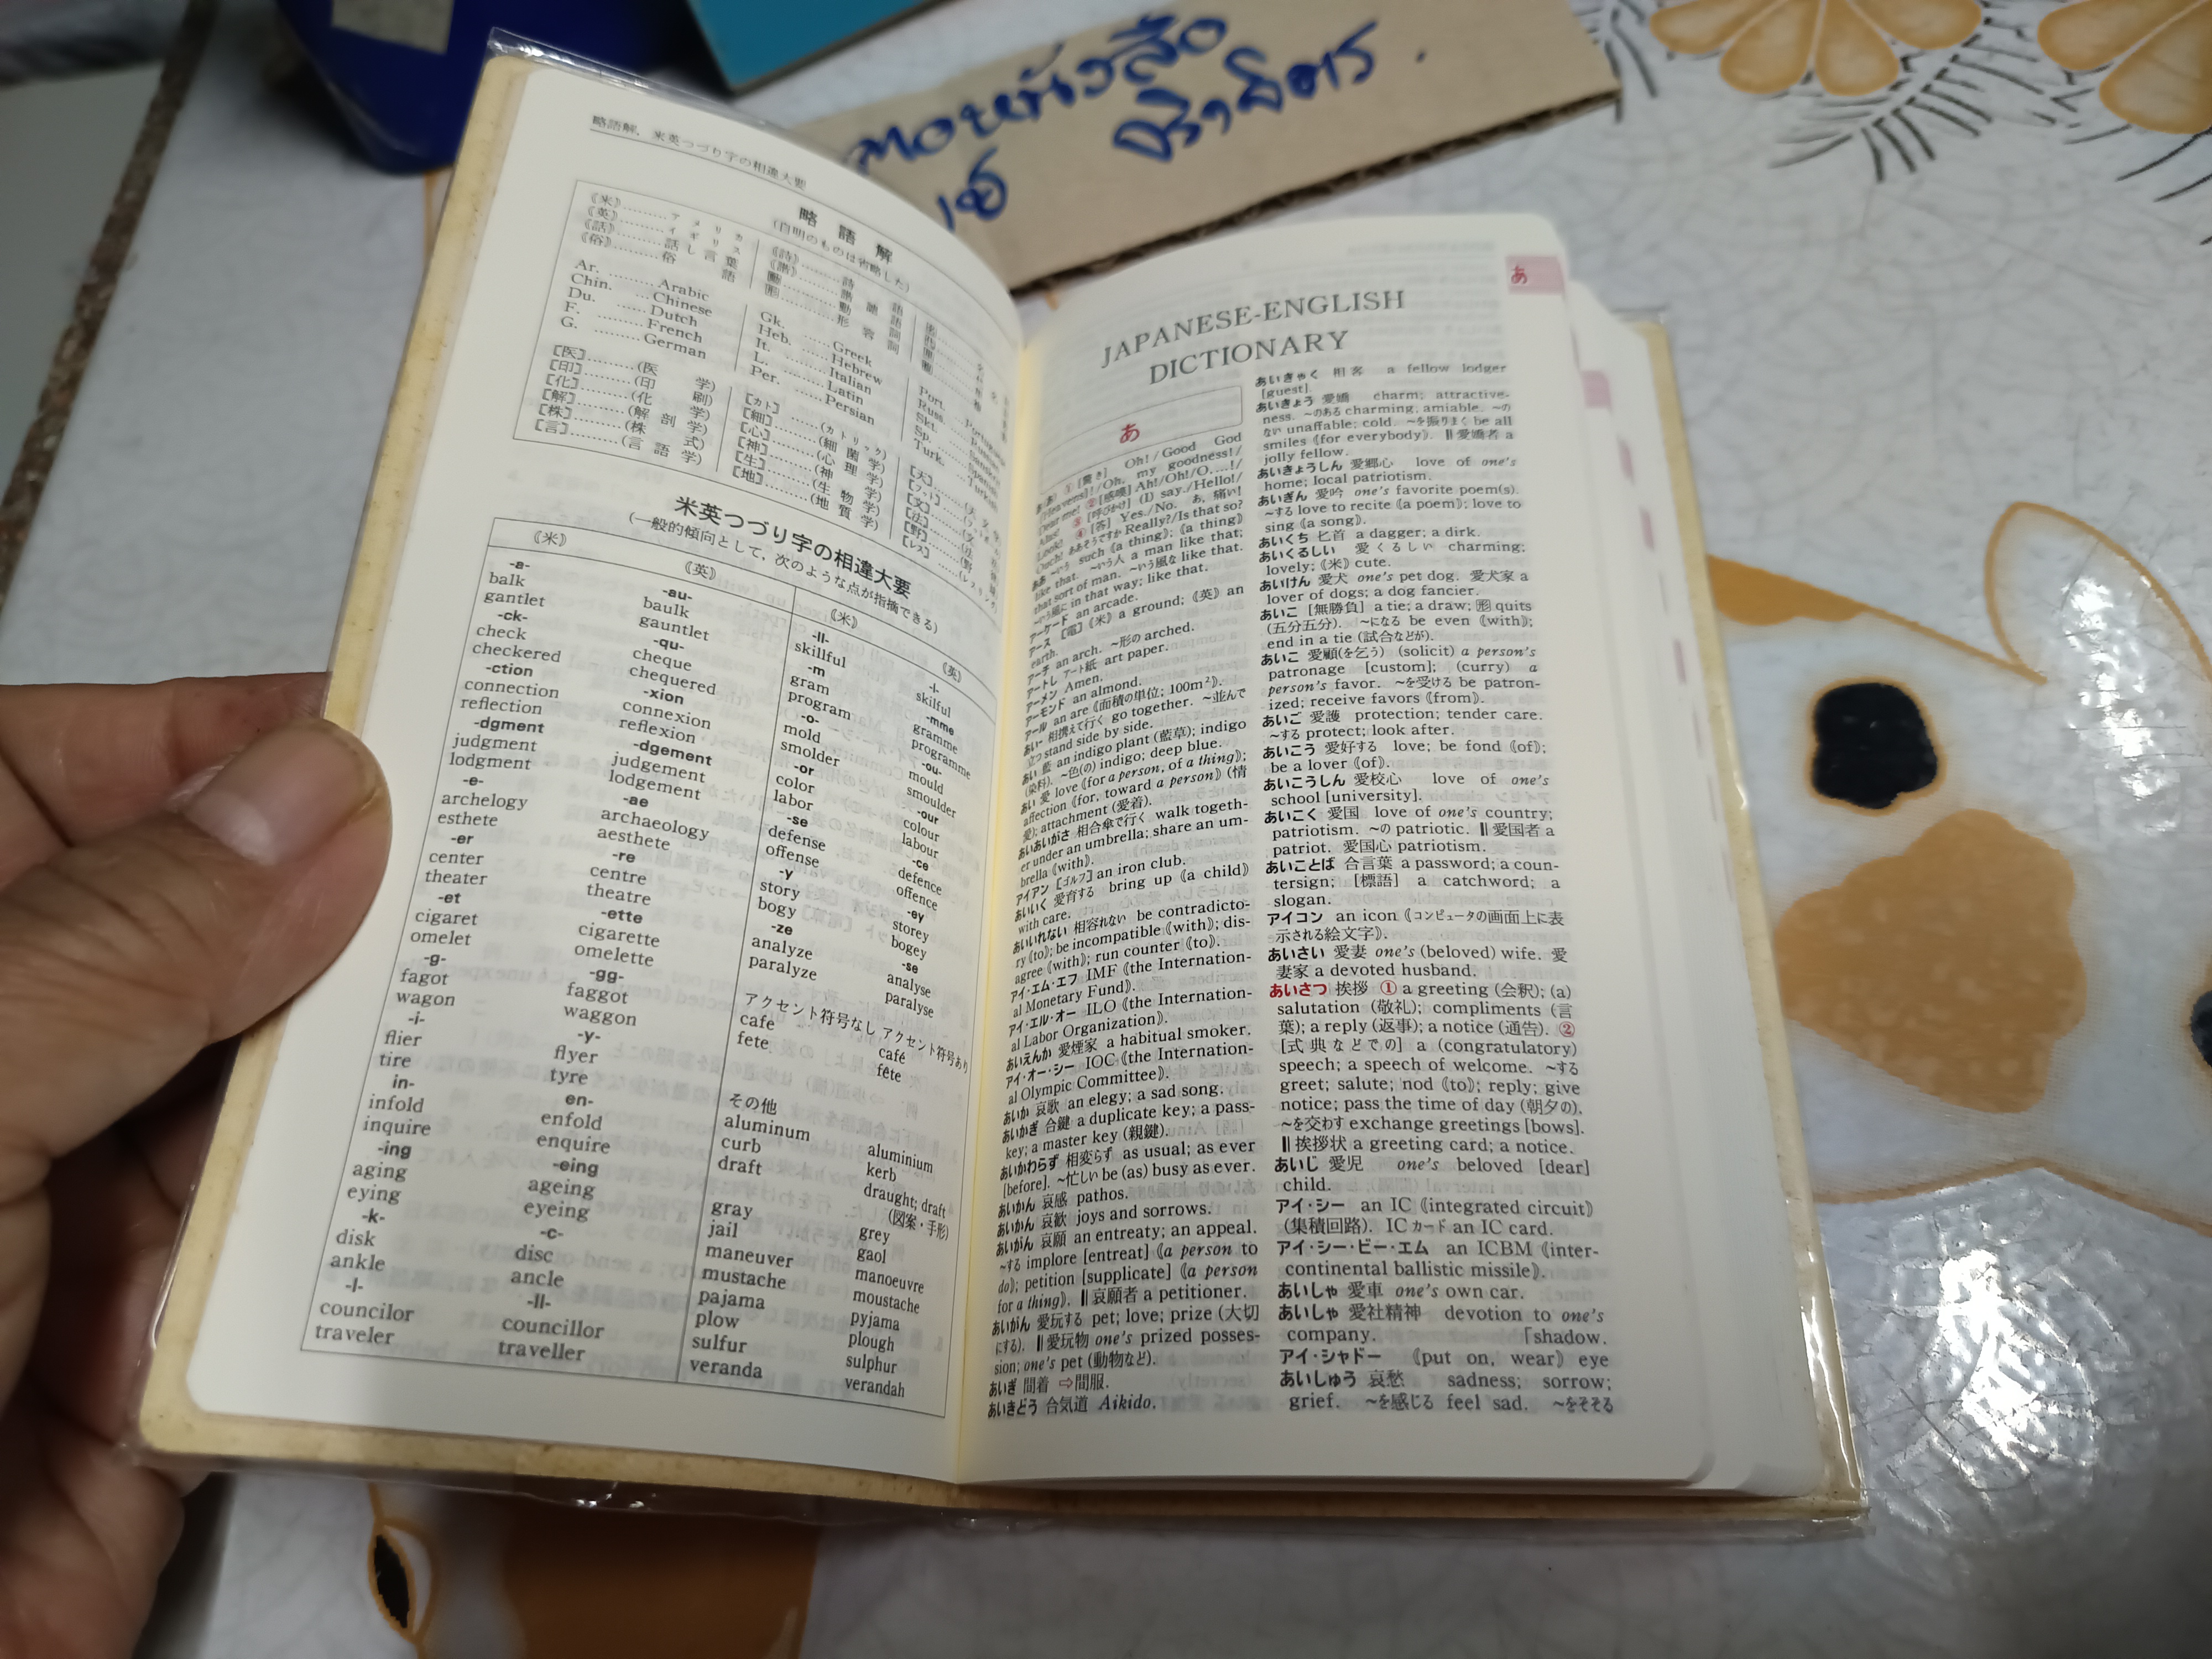 略語解，米英つづり字の相違大要
略 語 解
(自明のものは省略した)
《米》………アメリカ
《英》………イギリス
《話》………話し言葉
《俗》………俗 語
《詩》………詩 語
Ar. ………Arabic
Chin. …Chinese
Du. ………Dutch
F. ………French
G. ………German
Gk. ………Greek
Heb. ……Hebrew
It. ………Italian
L. ………Latin
Per. ……Persian
Port.
Russ.
Skt.
Sp.
Turk.
[医]………(医 学)
[印]………(印 刷)
[化]………(化 学)
[解]………(解 剖 学)
[株]………(株 式)
[言]………(言 語 学)
[カト]……(カトリック)
[細]………(細 菌 学)
[心]………(心 理 学)
[神]………(神 学)
[生]………(生 物 学)
[地]………(地 質 学)
米英つづり字の相違大要
(一般的傾向として，次のような点が指摘できる)
《米》 《英》
-a- -au-
balk baulk
gantlet gauntlet
-ck- -qu-
check cheque
checkered chequered
-ction -xion
connection connexion
reflection reflexion
-dgment -dgement
judgment judgement
lodgment lodgement
-e- -ae
archelogy archaeology
esthete aesthete
-er -re
center centre
theater theatre
-et -ette
cigaret cigarette
omelet omelette
-g- -gg-
fagot faggot
wagon waggon
-i- -y-
flier flyer
tire tyre
in- en-
infold enfold
inquire enquire
-ing -eing
aging ageing
eying eyeing
-k- -c-
disk disc
ankle ancle
-l- -ll-
councilor councillor
traveler traveller
《米》 《英》
-ll- -l-
skillful skilful
-m -mme
gram gramme
program programme
-o- -ou-
mold mould
smolder smoulder
-or -our
color colour
labor labour
-se -ce
defense defence
offense offence
-y -ey
story storey
bogy bogey
-ze -se
analyze analyse
paralyze paralyse
アクセント符号なし アクセント符号あり
cafe café
fete fête
その他
aluminum aluminium
curb kerb
draft draught; draft
(図案・手形)
gray grey
jail gaol
maneuver manoeuvre
mustache moustache
pajama pyjama
plow plough
sulfur sulphur
veranda verandah
あ
JAPANESE-ENGLISH
DICTIONARY
あ
ああ ① [驚き] Oh! / Good God
[Heavens]! / Oh, my goodness! /
Dear me! ② [感嘆] Ah!/Oh!/O....!/
Alas! ③ [呼びかけ] (I) say./Hello!/
Look! ④ [答] Yes./No. あ, 痛い!
Ouch! ああそうですか Really?/Is that so?
ああ ～いう such 《a thing》; 《a thing》
like that. ～いう人 a man like that;
that sort of man. ～いう風な like that.
～いう風に in that way; like that.
アーケード an arcade.
アース [電]《米》a ground; 《英》an
earth.
アーチ an arch. ～形の arched.
アートし アート紙 art paper.
アーメン Amen.
アーモンド an almond.
アール an are《面積の単位; 100m²》.
あい- 相携えて行く go together. ～並んで
立つ stand side by side.
あい 藍 an indigo plant (藍草); indigo
(染料). ～色(の) indigo; deep blue.
あい 愛 love《for a person, of a thing》;
affection《for, toward a person》(情
愛); attachment (愛着).
あいあいがさ 相合傘で行く walk togeth-
er under an umbrella; share an um-
brella《with》.
アイアン [ゴルフ] an iron club.
あいいく 愛育する bring up《a child》
with care.
あいいれない 相容れない be contradicto-
ry《to》; be incompatible《with》; dis-
agree《with》; run counter《to》.
アイ・エム・エフ IMF《the Internation-
al Monetary Fund》.
アイ・エル・オー ILO《the Internation-
al Labor Organization》.
あいえんか 愛煙家 a habitual smoker.
アイ・オー・シー IOC《the Internation-
al Olympic Committee》.
あいか 哀歌 an elegy; a sad song.
あいかぎ 合鍵 a duplicate key; a pass-
key; a master key (親鍵).
あいかわらず 相変らず as usual; as ever
[before]. ～忙しい be (as) busy as ever.
あいかん 哀感 pathos.
あいかん 哀歓 joys and sorrows.
あいがん 哀願 an entreaty; an appeal.
～する implore [entreat]《a person to
do》; petition [supplicate]《a person
for a thing》. ‖哀願者 a petitioner.
あいがん 愛玩する pet; love; prize (大切
にする). ‖愛玩物 one's prized posses-
sion; one's pet (動物など).
あいぎ 間着 ⇨間服.
あいきどう 合気道 Aikido.
あいきゃく 相客 a fellow lodger
[guest].
あいきょう 愛嬌 charm; attractive-
ness. ～のある charming; amiable. ～の
ない unaffable; cold. ～を振りまく be all
smiles《for everybody》. ‖愛嬌者 a
jolly fellow.
あいきょうしん 愛郷心 love of one's
home; local patriotism.
あいぎん 愛吟 one's favorite poem(s).
～する love to recite《a poem》; love to
sing《a song》.
あいくち 匕首 a dagger; a dirk.
あいくるしい 愛くるしい charming;
lovely; 《米》cute.
あいけん 愛犬 one's pet dog. 愛犬家 a
lover of dogs; a dog fancier.
あいこ [無勝負] a tie; a draw; 形 quits
(五分五分). ～になる be even《with》;
end in a tie (試合などが).
あいこ 愛顧(を乞う) (solicit) a person's
patronage [custom]; (curry) a
person's favor. ～を受ける be patron-
ized; receive favors《from》.
あいご 愛護 protection; tender care.
～する protect; look after.
あいこう 愛好する love; be fond《of》;
be a lover《of》.
あいこうしん 愛校心 love of one's
school [university].
あいこく 愛国 love of one's country;
patriotism. ～の patriotic. ‖愛国者 a
patriot. 愛国心 patriotism.
あいことば 合言葉 a password; a coun-
tersign; [標語] a catchword; a
slogan.
アイコン an icon《コンピュータの画面上に表
示される絵文字》.
あいさい 愛妻 one's (beloved) wife. 愛
妻家 a devoted husband.
あいさつ 挨拶 ① a greeting (会釈); (a)
salutation (敬礼); compliments (言
葉); a reply (返事); a notice (通告). ②
[式典などでの] a (congratulatory)
speech; a speech of welcome. ～する
greet; salute; nod《to》; reply; give
notice; pass the time of day (朝夕の).
～を交わす exchange greetings [bows].
‖挨拶状 a greeting card; a notice.
あいじ 愛児 one's beloved [dear]
child.
アイ・シー an IC《integrated circuit》
(集積回路). ICカード an IC card.
アイ・シー・ビー・エム an ICBM《inter-
continental ballistic missile》.
あいしゃ 愛車 one's own car.
あいしゃ 愛社精神 devotion to one's
company. 「shadow.
アイ・シャドー《put on, wear》eye
あいしゅう 哀愁 sadness; sorrow;
grief. ～を感じる feel sad. ～をそそる